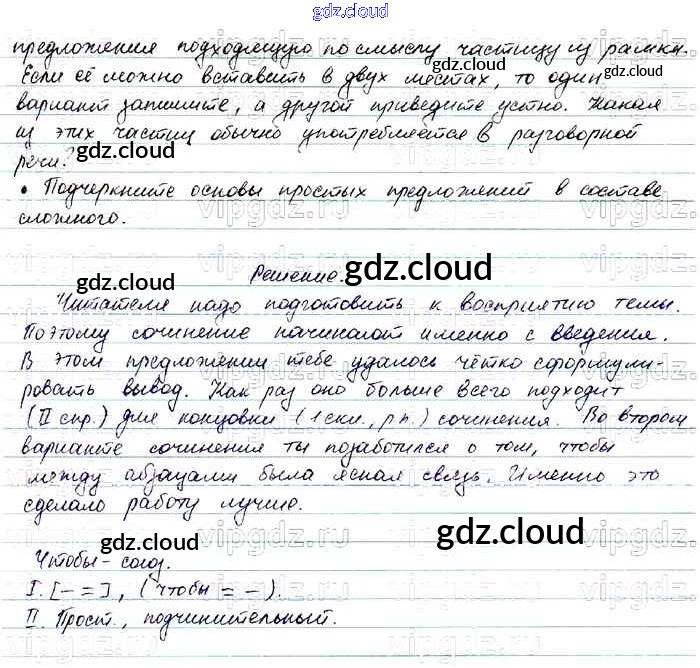 gdz.cloud
предложения подходящую по смыслу частицу из рамки.
Если её можно вставить в двух местах, то один
gdz.cloud
вариант запишите, а другой приведите устно. Какая
из этих частиц обычно употребляется в разговорной
речи?
gdz.cloud
• Подчеркните основы простых предложений в составе
сложного.
gdz.cloud
Решение.
gdz.cloud
Читателя надо подготовить к восприятию темы.
Поэтому сочинение начинают именно с введения.
В этом предложении тебе удалось чётко сформули-
gdz.cloud
gdz.cloud
ровать вывод. Как раз оно больше всего подходит
(II спр.) для концовки (1 скл., р.п.) сочинения. Во втором
варианте сочинения ты позаботился о том, чтобы
между абзацами была ясная связь. Именно это
сделало работу лучше.
gdz.cloud
gdz.cloud
Чтобы - союз.
I. [- =], (чтобы = -).
II. Прост., подчинительный.